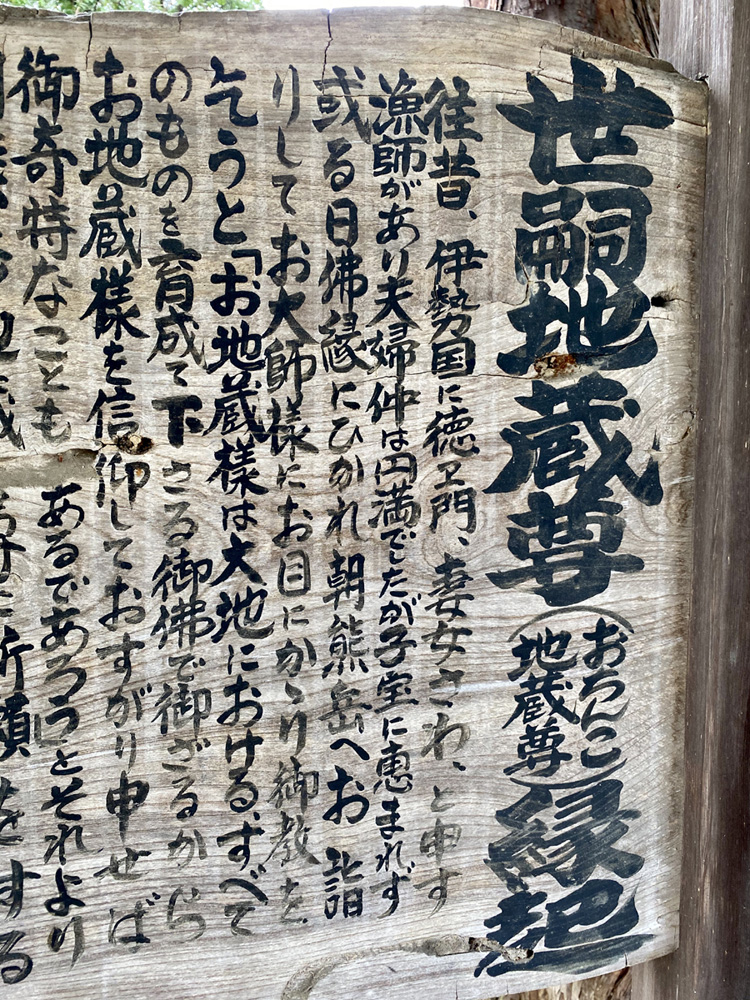 世嗣地蔵尊(おちんこ地蔵尊)縁起
往昔、伊勢国に徳ヱ門、妻女さわ、と申す
漁師があり夫婦仲は円満でしたが子宝に恵まれず
或る日佛縁にひかれ朝熊岳へお詣
りしてお大師様にお目にかゝり御教を
乞うと「お地蔵様は大地におけるすべて
のものを育成て下さる御佛で御ざるから
お地蔵様を信仰しておすがり申せば
御奇特なこともあるであろう」とそれより
祈願をする